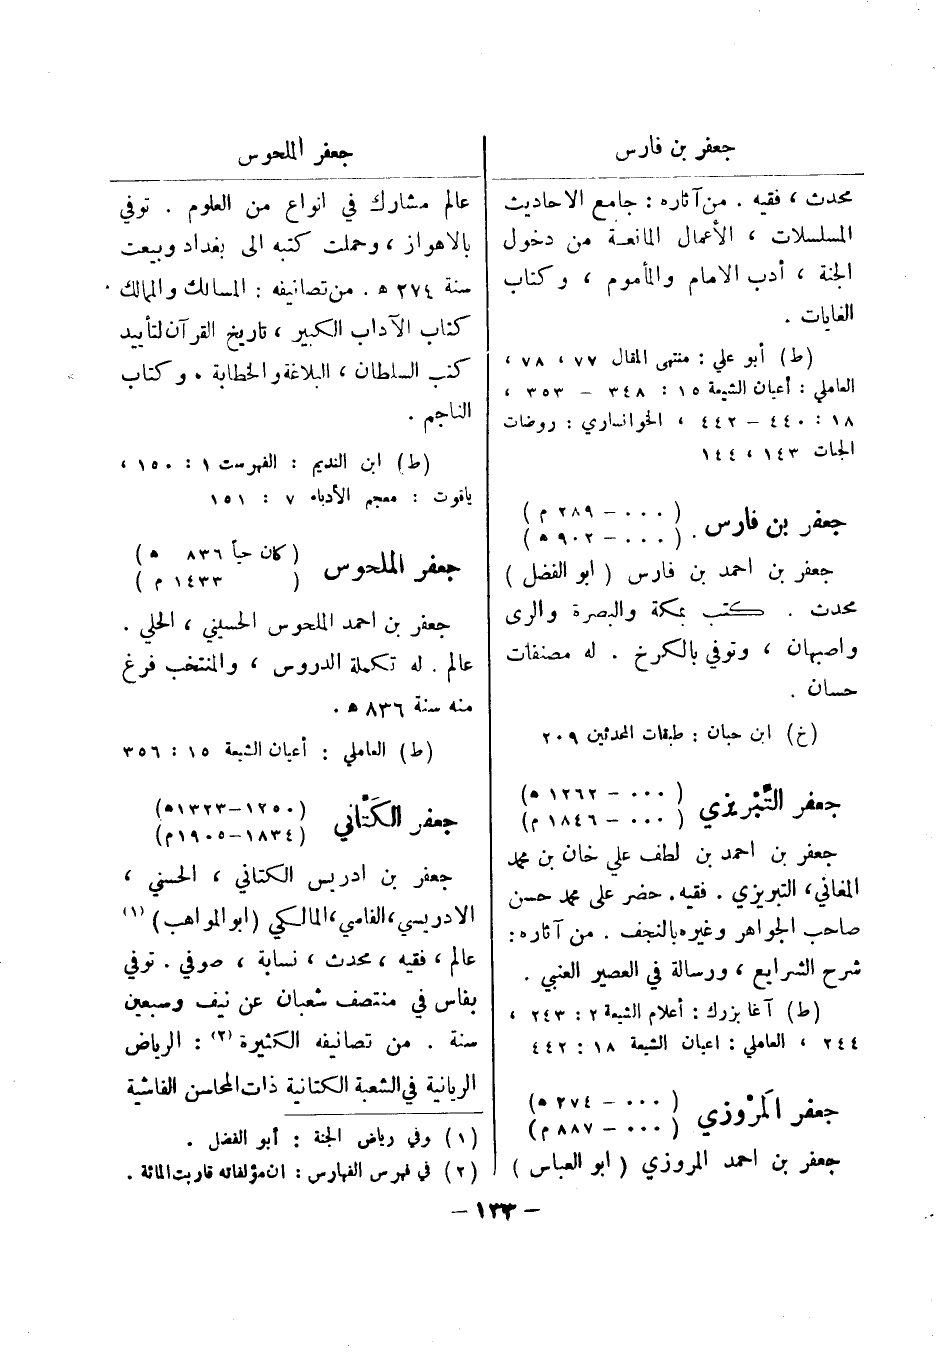 جعفر بن فارس
محدث ، فقيه . من آثاره : جامع الاحاديث
المسلسلات ، الأعمال المانعة من دخول
الجنة ، أدب الامام والمأموم ، وكتاب
الغايات .
(ط) أبو علي : منتهى المقال ٧٧ ، ٧٨ ،
العاملي : أعيان الشيعة ١٥ : ٣٤٨ – ٣٥٣ ،
١٨ : ٤٤٠ – ٤٤٢ ، الخوانساري : روضات
الجنات ١٤٣ ، ١٤٤
جعفر بن فارس . ( ٠٠٠ – ٢٨٩ م )
( ٠٠٠ – ٩٠٢ ه )
جعفر بن احمد بن فارس ( ابو الفضل )
محدث . كتب بمكة والبصرة والرى
واصبهان ، وتوفي بالكرخ . له مصنفات
حسان .
(خ) ابن حبان : طبقات المحدثين ٢٠٩
جعفر التَّبْريزي ( ٠٠٠ – ١٢٦٢ ه )
( ٠٠٠ – ١٨٤٦ م )
جعفر بن احمد بن لطف علي خان بن محمد
المغاني ، التبريزي . فقيه . حضر على محمد حسن
صاحب الجواهر وغيره بالنجف . من آثاره :
شرح الشرايع ، ورسالة في العصير العنبي .
(ط) آغا بزرك : أعلام الشيعة ٢ : ٢٤٣ ،
٢٤٤ ، العاملي : اعيان الشيعة ١٨ : ٤٤٢
جعفر المَرْوزي ( ٠٠٠ – ٢٧٤ ه )
( ٠٠٠ – ٨٨٧ م )
جعفر بن احمد المروزي ( ابو العباس )
جعفر الملحوس
عالم مشارك في انواع من العلوم . توفي
بالاهواز ، وحملت كتبه الى بغداد وبيعت
سنة ٢٧٤ ه . من تصانيفه : المسالك والممالك .
كتاب الآداب الكبير ، تاريخ القرآن لتأييد
كتب السلطان ، البلاغة والخطابة . وكتاب
الناجم .
(ط) ابن النديم : الفهرست ١ : ١٥٠ ،
ياقوت : معجم الأدباء ٧ : ١٥١
جعفر الملحوس ( كان حياً ٨٣٦ ه )
( ١٤٣٣ م )
جعفر بن احمد الملحوس الحسيني ، الحلي .
عالم . له تكملة الدروس ، والمنتخب فرغ
منه سنة ٨٣٦ ه .
(ط) العاملي : أعيان الشيعة ١٥ : ٣٥٦
جعفر الكَتّاني (١٢٥٠–١٣٢٣ه)
(١٨٣٤–١٩٠٥م)
جعفر بن ادريس الكتاني ، الحسني ،
الادريسي ، الفاسي ، المالكي (ابو المواهب) (١)
عالم ، فقيه ، محدث ، نسابة ، صوفي . توفي
بفاس في منتصف شعبان عن نيف وسبعين
سنة . من تصانيفه الكثيرة (٢) : الرياض
الريانية في الشعبة الكتانية ذات المحاسن الفاشية
(١) وفي رياض الجنة : أبو الفضل .
(٢) في فهرس الفهارس : ان مؤلفاته قاربت المائة .
– ١٣٣ –